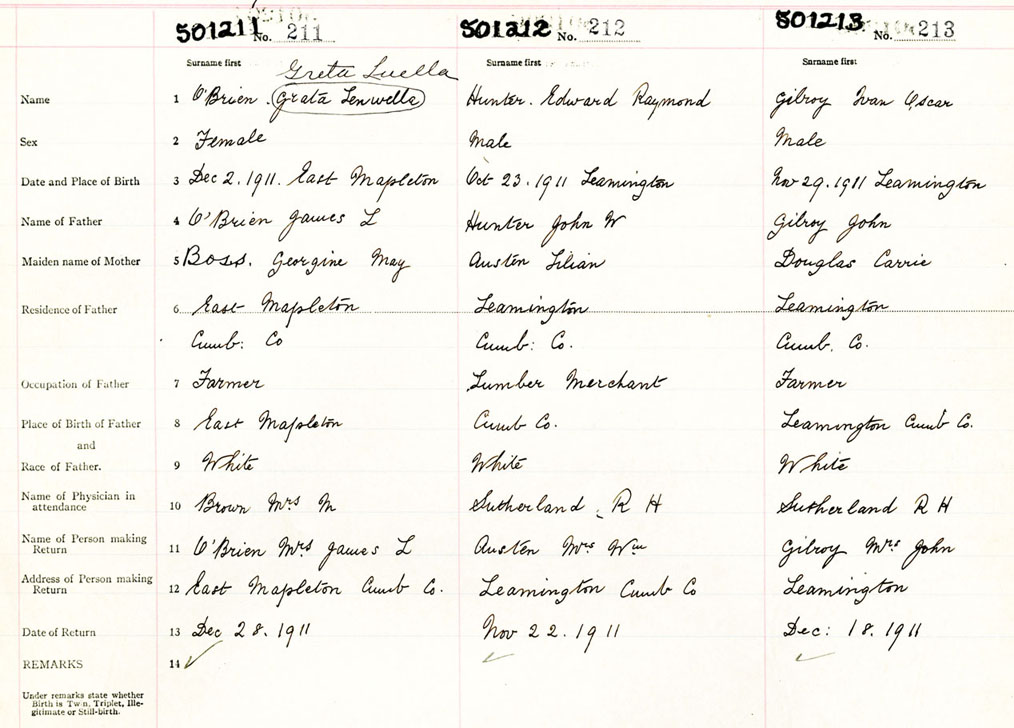 501211 No. 211 501212 No. 212 501213 No. 213
Surname first Surname first Surname first
Greta Luella
Name 1 O'Brien. Grata Lenwella Hunter. Edward Raymond Gilroy Ivan Oscar
Sex 2 Female Male Male
Date and Place of Birth 3 Dec 2. 1911. East Mapleton Oct 23. 1911 Leamington Nov 29. 1911 Leamington
Name of Father 4 O'Brien James L Hunter John W Gilroy John
Maiden name of Mother 5 Boss. Georgine May Austen Lilian Douglas Carrie
Residence of Father 6 East Mapleton Leamington Leamington
Cumb: Co Cumb: Co. Cumb. Co.
Occupation of Father 7 Farmer Lumber Merchant Farmer
Place of Birth of Father 8 East Mapleton Cumb Co. Leamington Cumb Co.
and
Race of Father. 9 White White White
Name of Physician in
attendance 10 Brown Mrs M Sutherland, R H Sutherland R H
Name of Person making
Return 11 O'Brien Mrs James L Austen Mrs Wm Gilroy Mrs John
Address of Person making
Return 12 East Mapleton Cumb Co. Leamington Cumb Co Leamington
Date of Return 13 Dec 28. 1911 Nov 22. 1911 Dec: 18. 1911
REMARKS 14 ✓ ✓ ✓
Under remarks state whether
Birth is Twin, Triplet, Ille-
gitimate or Still-birth.